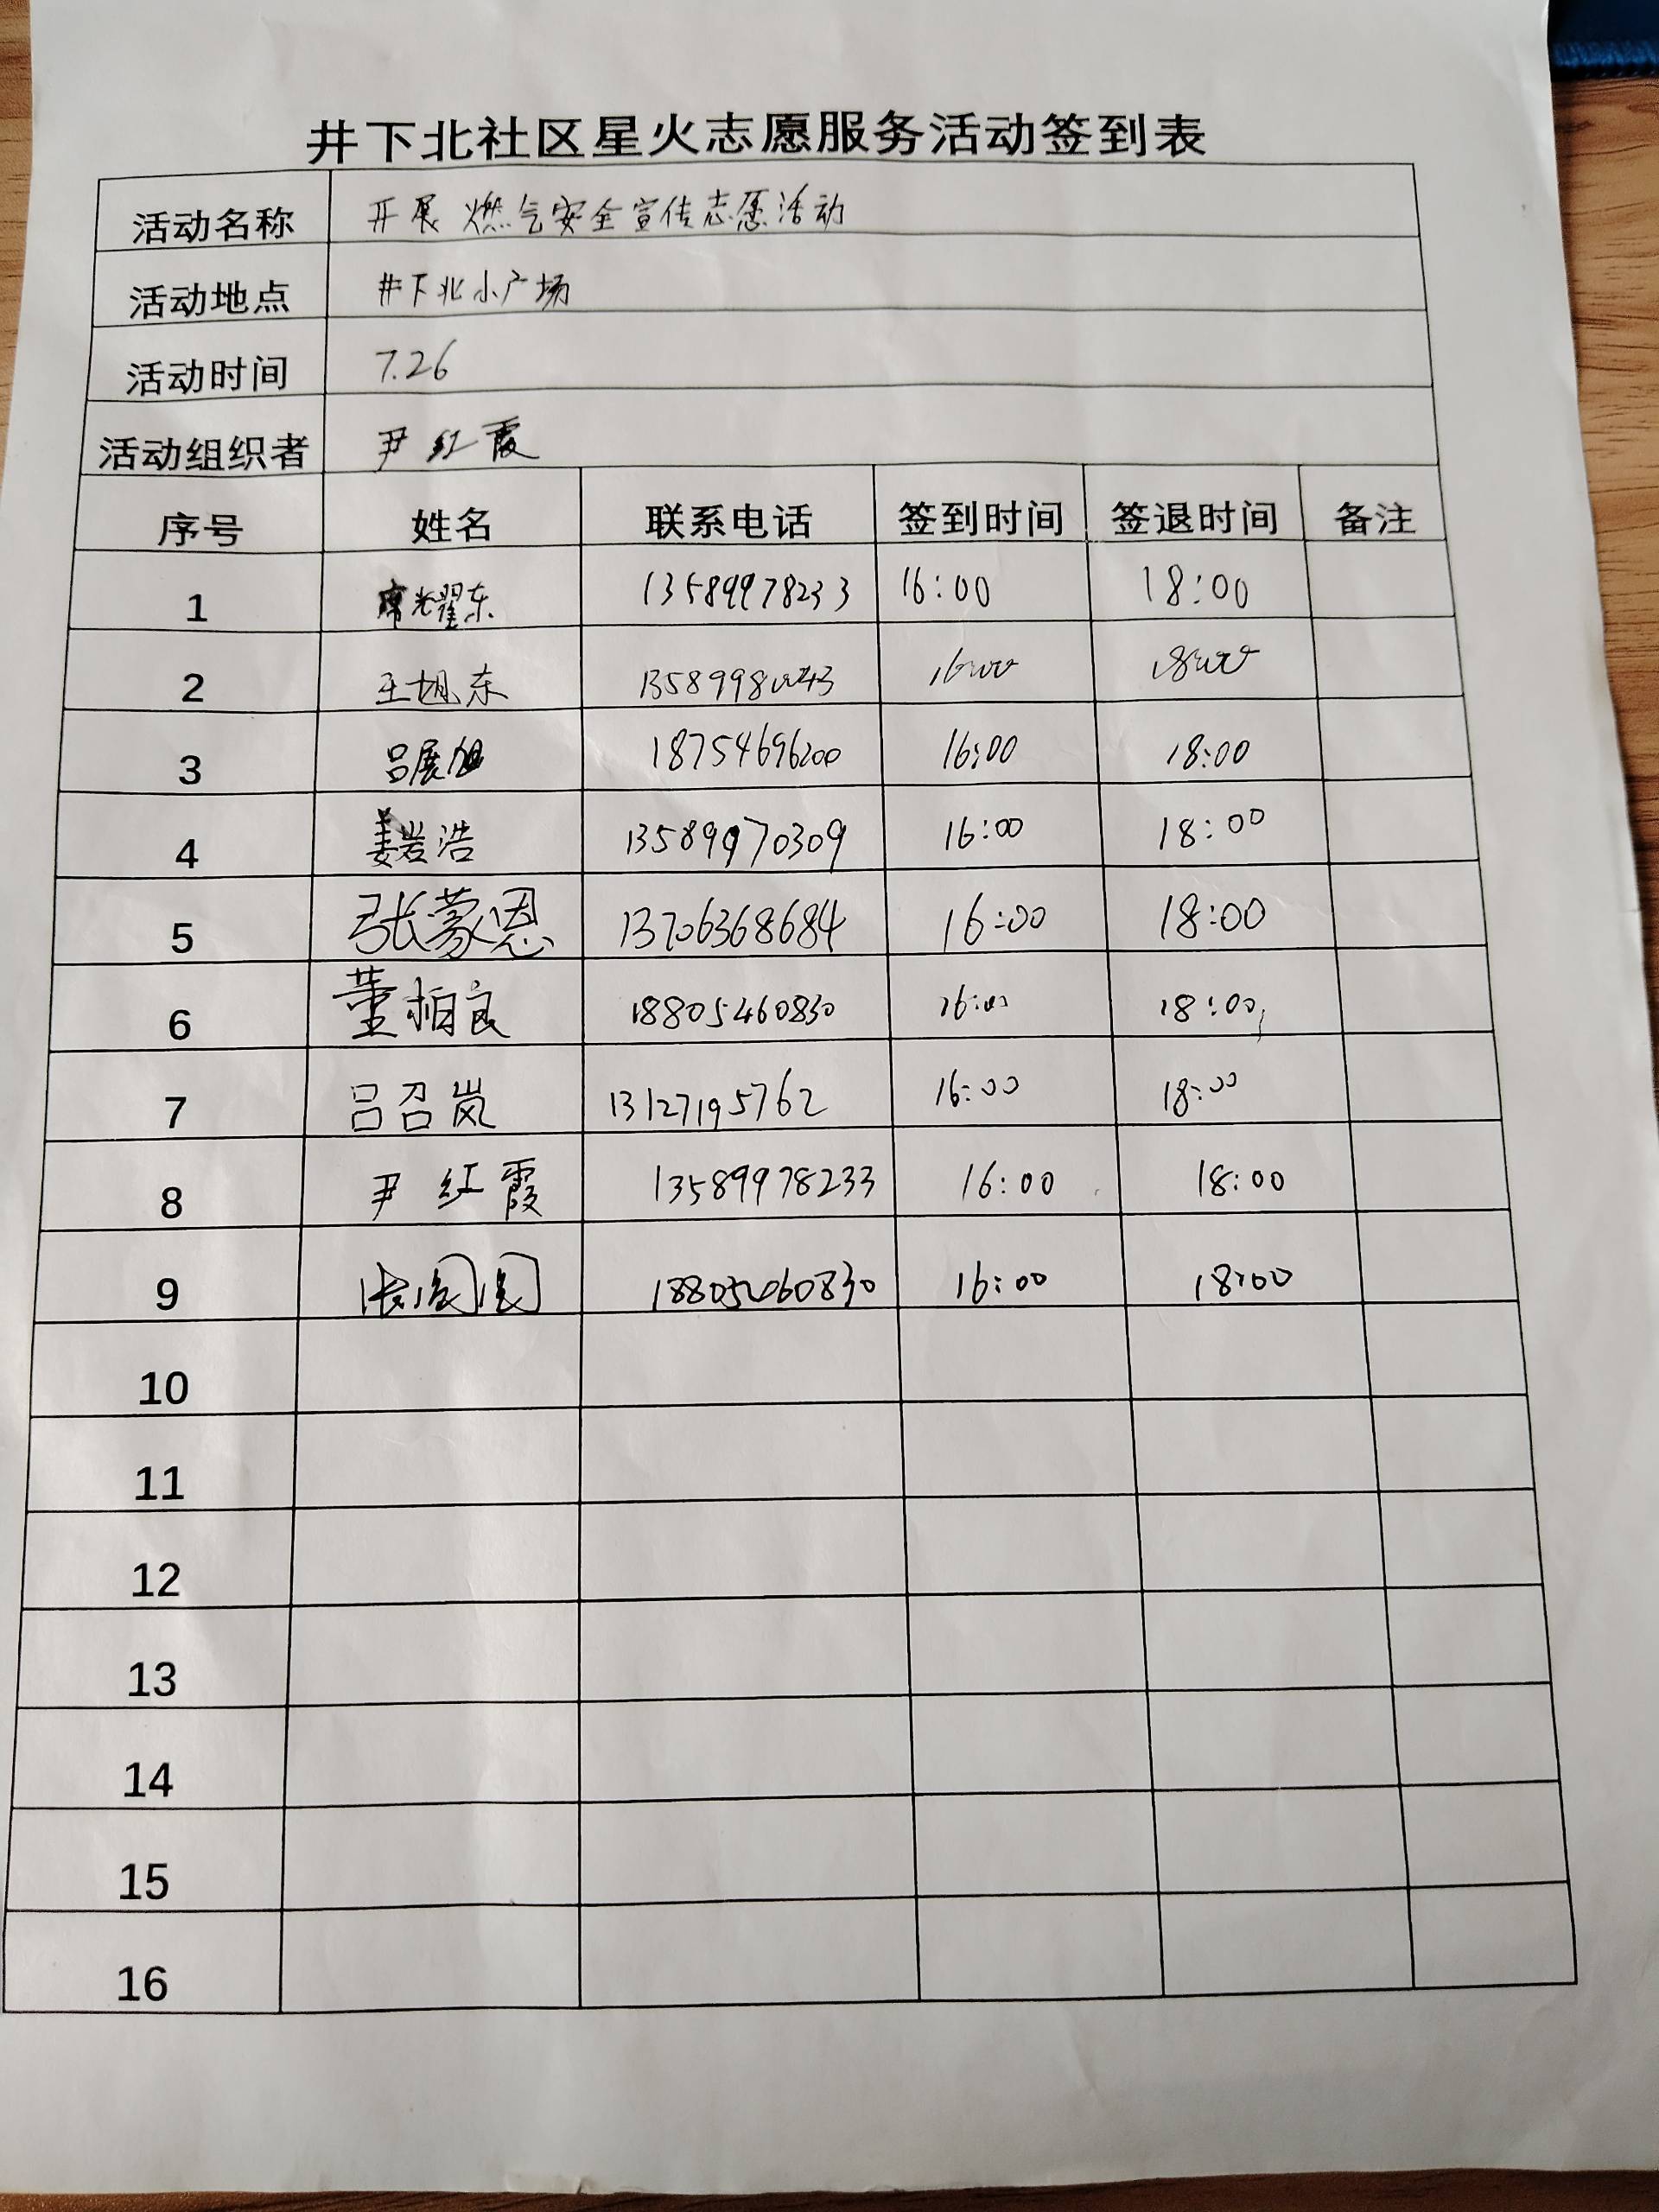 井下北社区星火志愿服务活动签到表
活动名称 开展燃气安全宣传志愿活动
活动地点 井下北小广场
活动时间 7.26
活动组织者 尹红霞
序号 姓名 联系电话 签到时间 签退时间 备注
1 席耀东 13589978233 16:00 18:00
2 王旭东 16:00 18:00
3 吕展旭 18754696200 16:00 18:00
4 姜岩浩 13589970309 16:00 18:00
5 张蒙恩 13706368684 16:00 18:00
6 董柏良 18805460830 16:00 18:00
7 吕召岚 13127195762 16:00 18:00
8 尹红霞 13589978233 16:00 18:00
9 16:00 18:00
10
11
12
13
14
15
16